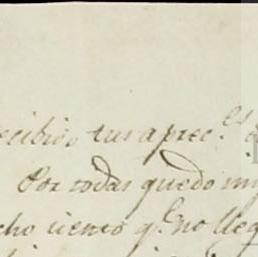 ecibio, tus aprec.es
Por todas quedo
cho siento q.e no lleg